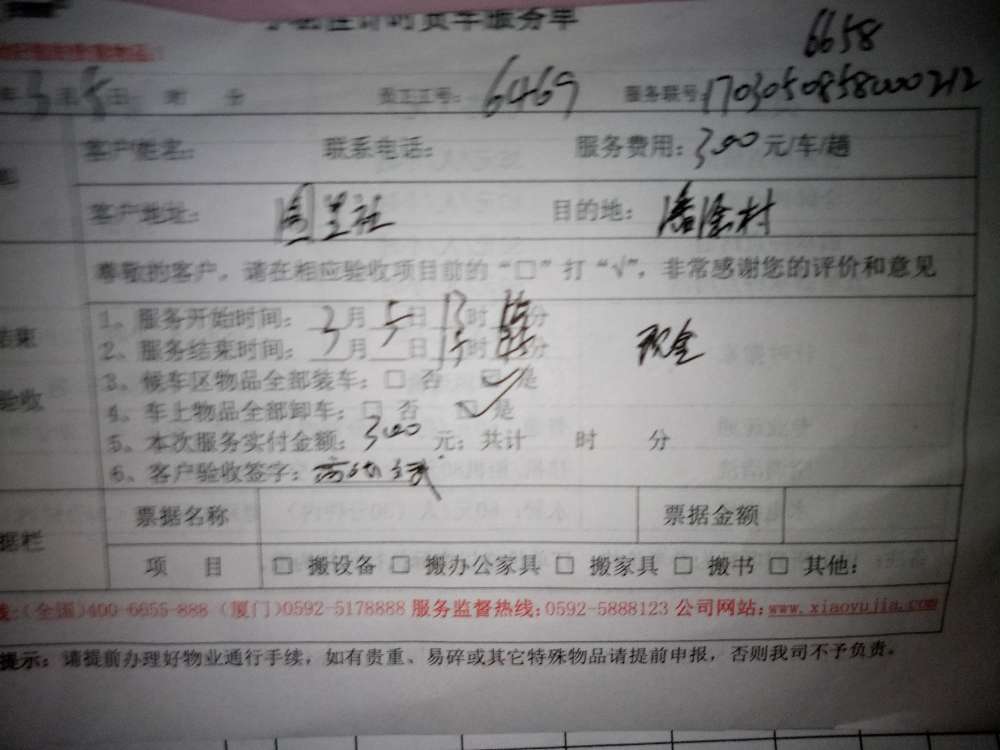 计时货车服务单
6658
年3月5日 时 分 员工工号:6469 服务联号170305085800212
客户姓名: 联系电话: 服务费用:300元/车/趟
客户地址: 目的地:潘涂村
尊敬的客户，请在相应验收项目前的“□”打“√”，非常感谢您的评价和意见
1、服务开始时间:3月5日13时 分
2、服务结束时间: 月 日15时 分 现金
3、候车区物品全部装车:□ 否 ☑ 是
4、车上物品全部卸车:□ 否 ☑ 是
5、本次服务实付金额:300元;共计 时 分
6、客户验收签字:
验收
票据名称 票据金额
据栏
项 目 □ 搬设备 □ 搬办公家具 □ 搬家具 □ 搬书 □ 其他:
线:(全国)400-6655-888 (厦门)0592-5178888 服务监督热线:0592-5888123 公司网站:www.xiaoyujia.com
提示: 请提前办理好物业通行手续，如有贵重、易碎或其它特殊物品请提前申报，否则我司不予负责。